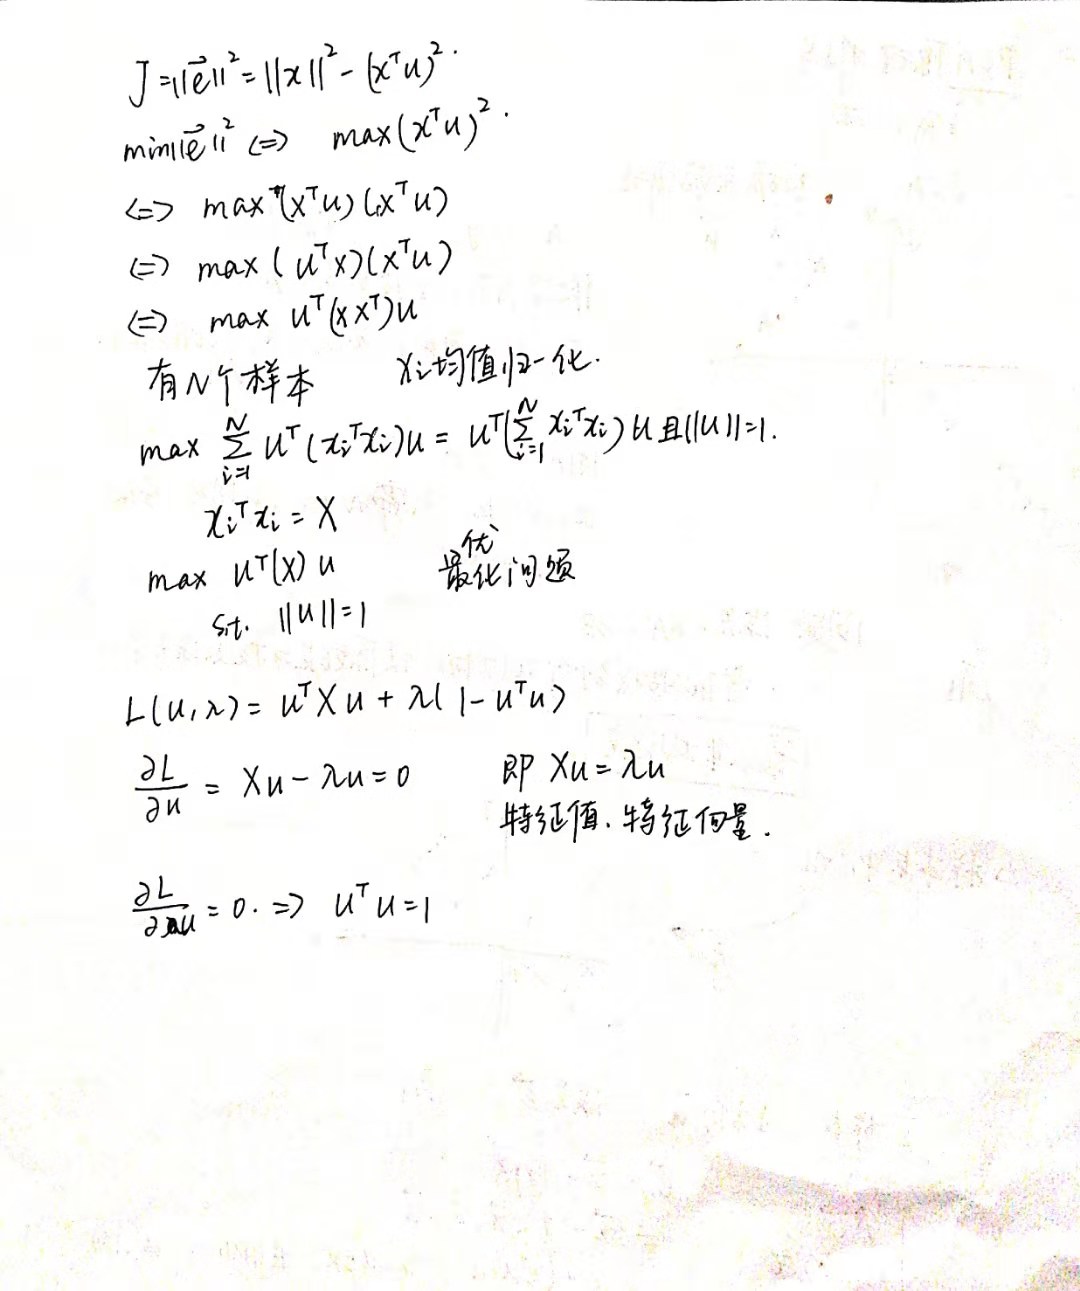 J=||e⃗||²=||x||²-(xᵀu)².
min||e⃗||² <=> max(xᵀu)².
<=> max (xᵀu)(xᵀu)
<=> max (uᵀx)(xᵀu)
<=> max uᵀ(xxᵀ)u
有N个样本 xᵢ均值归一化.
max ∑ᵢ₌₁ᴺ uᵀ(xᵢᵀxᵢ)u = uᵀ(∑ᵢ₌₁ᴺ xᵢᵀxᵢ)u且||u||=1.
xᵢᵀxᵢ = X
max uᵀ(X)u 最优化问题
s.t. ||u||=1
L(u,λ)= uᵀXu+λ(1-uᵀu)
∂L/∂u = Xu-λu=0 即 Xu=λu
特征值、特征向量.
∂L/∂u=0. => uᵀu=1